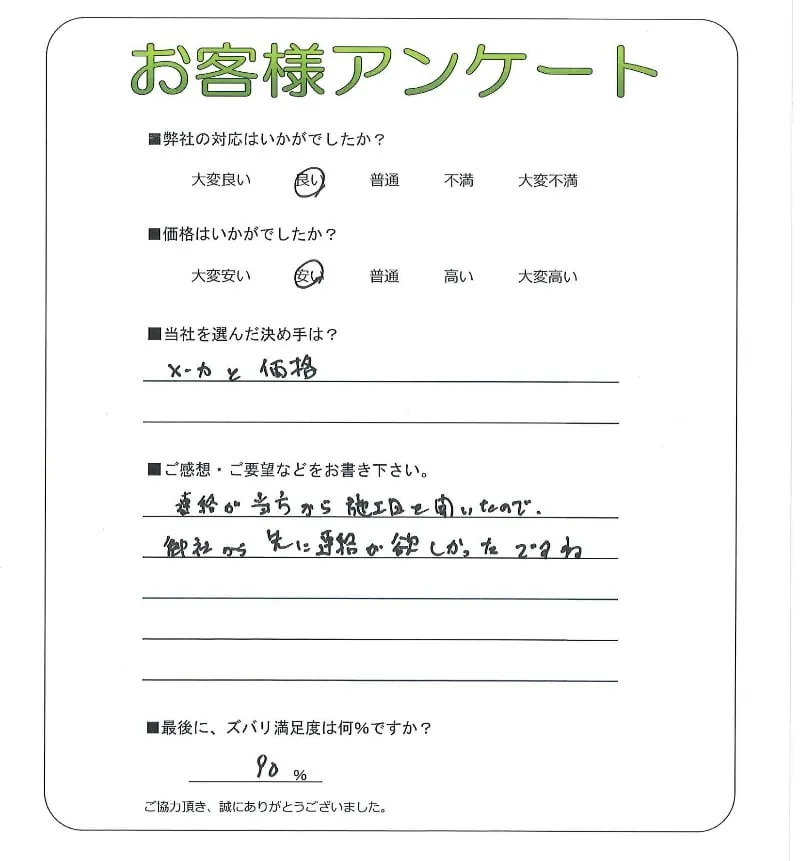 お客様アンケート
■弊社の対応はいかがでしたか？
大変良い 良い 普通 不満 大変不満
■価格はいかがでしたか？
大変安い 安い 普通 高い 大変高い
■当社を選んだ決め手は？
メーカと価格
■ご感想・ご要望などをお書き下さい。
連絡が当方から施工日を聞いたので、
御社から先に連絡が欲しかったですね
■最後に、ズバリ満足度は何%ですか？
90 %
ご協力頂き、誠にありがとうございました。